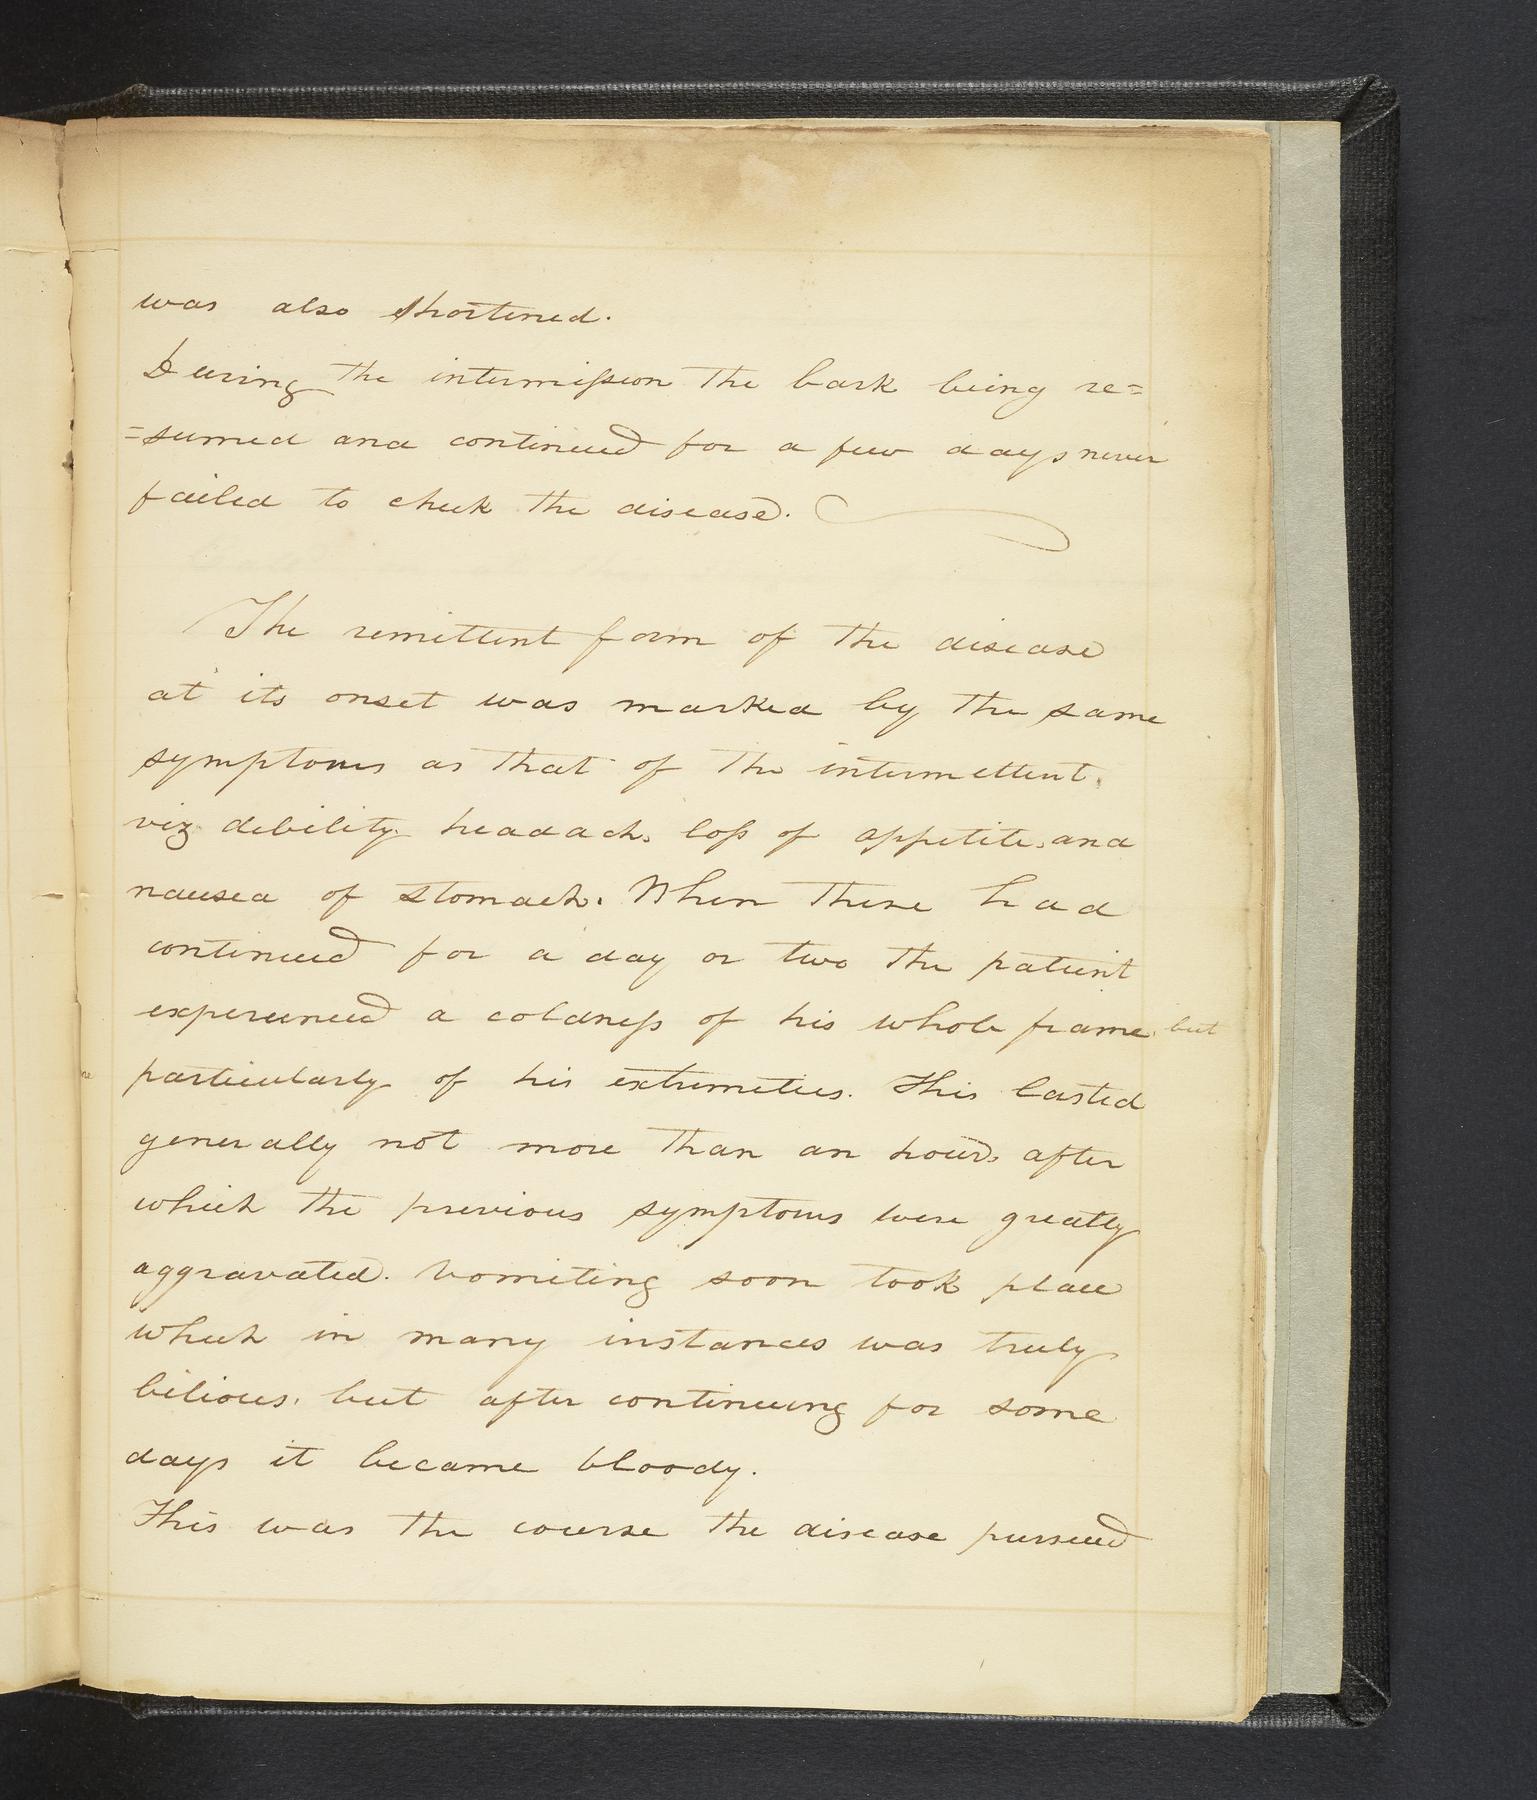 was also shortened.
During the intermission the bark being re=
=sumed and continued for a few days never
failed to check the disease.
The remittent form of the disease
at its onset was marked by the same
symptoms as that of the intermettent,
viz debility, headach, loss of appetite, and
nausea of stomach. When these had
continued for a day or two the patient
experienced a coldness of his whole frame, but
particularly of his extremities. This lasted
generally not more than an hour, after
which the previous symptoms were greatly
aggravated. Vomiting soon took place
which in many instances was truly
bilious, but after continuing for some
days it became bloody.
This was the course the disease pursued